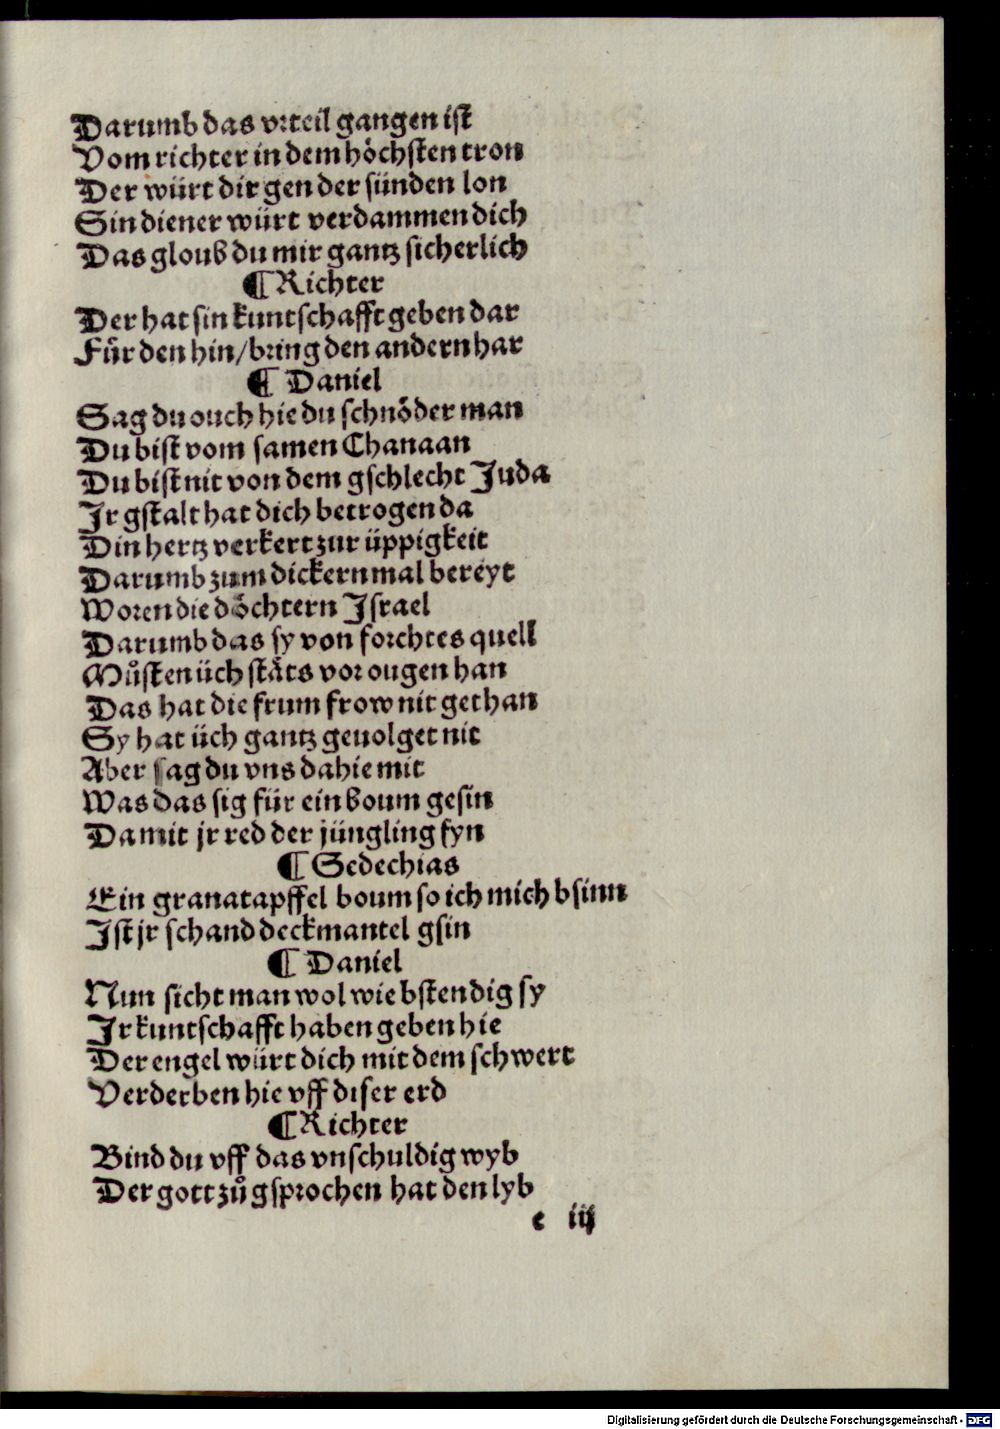 Darumb das vrteil gangen ist
Vom richter in dem höchsten tron
Der würt dir gen der sünden lon
Sin diener würt verdammen dich
Das gloub du mir gantz sicherlich
¶ Richter
Der hat sin kuntschafft geben dar
Für den hin/bring den andern har
¶ Daniel
Sag du ouch hie du schnöder man
Du bist vom samen Chanaan
Du bist nit von dem gschlecht Juda
Jr gstalt hat dich betrogen da
Din hertz verkert zur üppigkeit
Darumb zum dickern mal bereyt
Woren die döchtern Jsrael
Darumb das sy von forchtes quell
Muͦsten üch stäts vor ougen han
Das hat die frum frow nit gethan
Sy hat üch gantz geuolget nit
Aber sag du vns da hie mit
Was das sig für ein boum gesin
Da mit jr red der jüngling fyn
¶ Sedechias
Ein granatapffel boum so ich mich bsinn
Jst jr schand deckmantel gsin
¶ Daniel
Nun sicht man wol wie bstendig sy
Jr kuntschafft haben geben hie
Der engel würt dich mit dem schwert
Verderben hie vff diser erd
¶ Richter
Bind du vff das vnschuldig wyb
Der gott zuͦ gsprochen hat den lyb
e iij
Digitalisierung gefördert durch die Deutsche Forschungsgemeinschaft - DFG